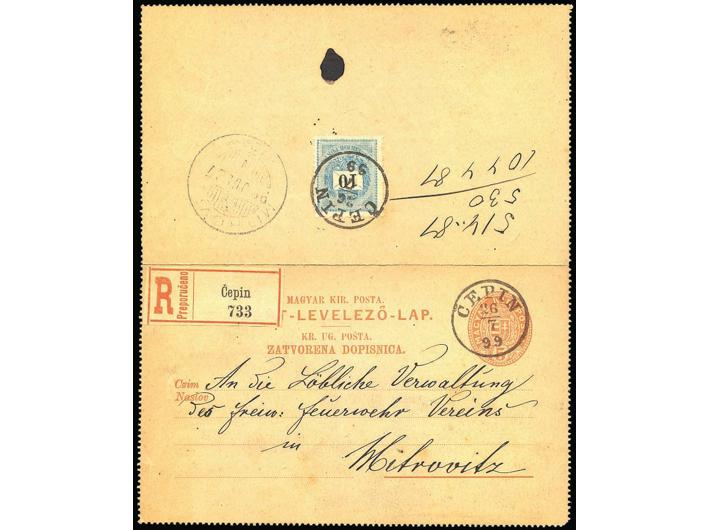 10
ČEPIN
26
7
99
514.87
530
1044 87
R
Preporučeno
Čepin
733
MAGYAR KIR. POSTA.
T-LEVELEZŐ-LAP.
KR. UG. POŠTA.
ZATVORENA DOPISNICA.
ČEPIN
26
7
99
Czim An die Löbliche Verwaltung
Naslov des freiw: Feuerwehr Vereins
in
Mitrovitz